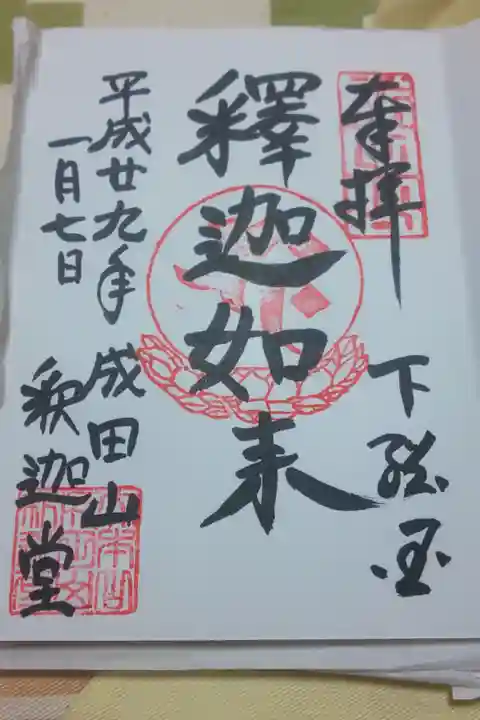 奉拝
下総国
釋迦如来
平成廿九年
一月七日
成田山
釈迦堂